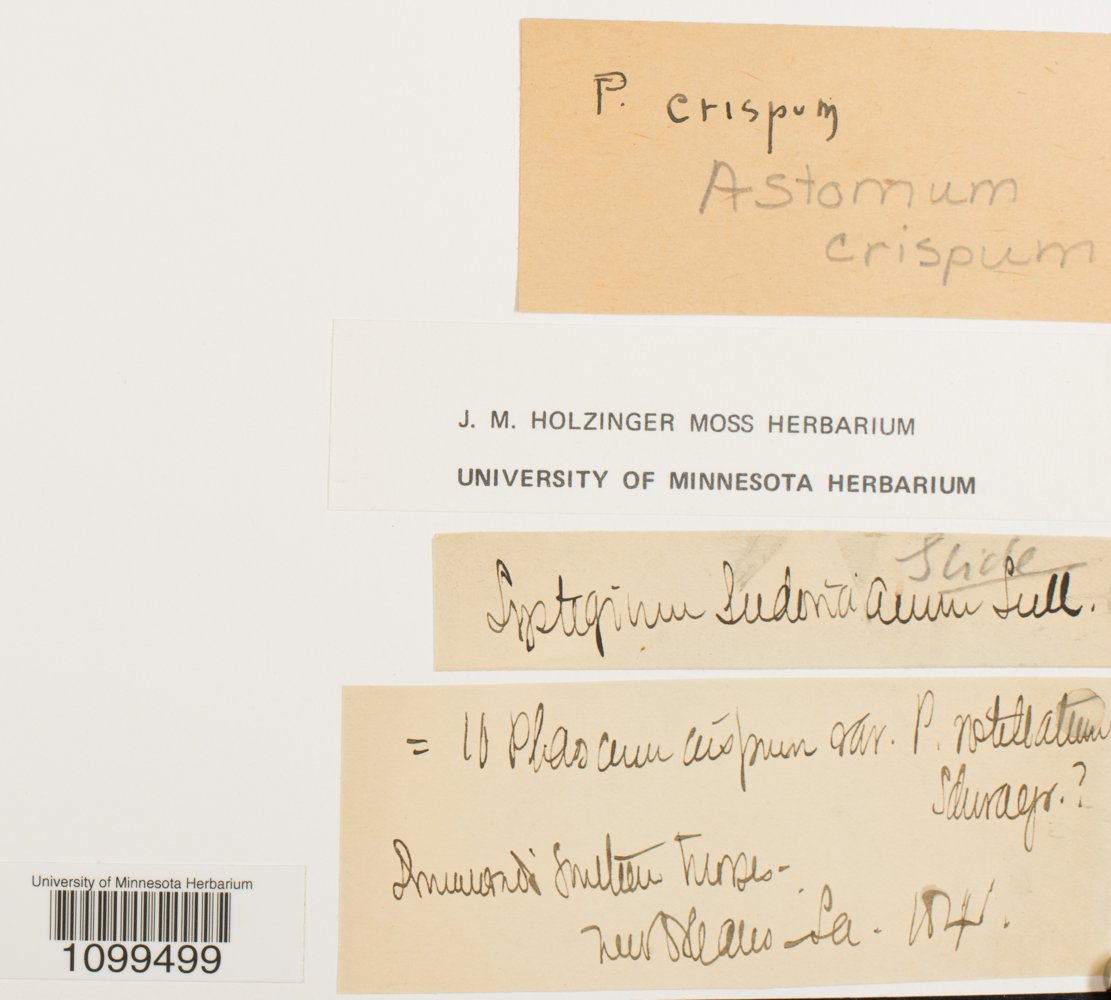 P. crispum
Astomum
crispum
J. M. HOLZINGER MOSS HERBARIUM
UNIVERSITY OF MINNESOTA HERBARIUM
Slide
Systegium Ludovicianum Sull.
= 10 Phascum crispum var. P. rostellatum
Schwaegr.?
Southern Mosses-
New Orleans La. 1841.
University of Minnesota Herbarium
1099499